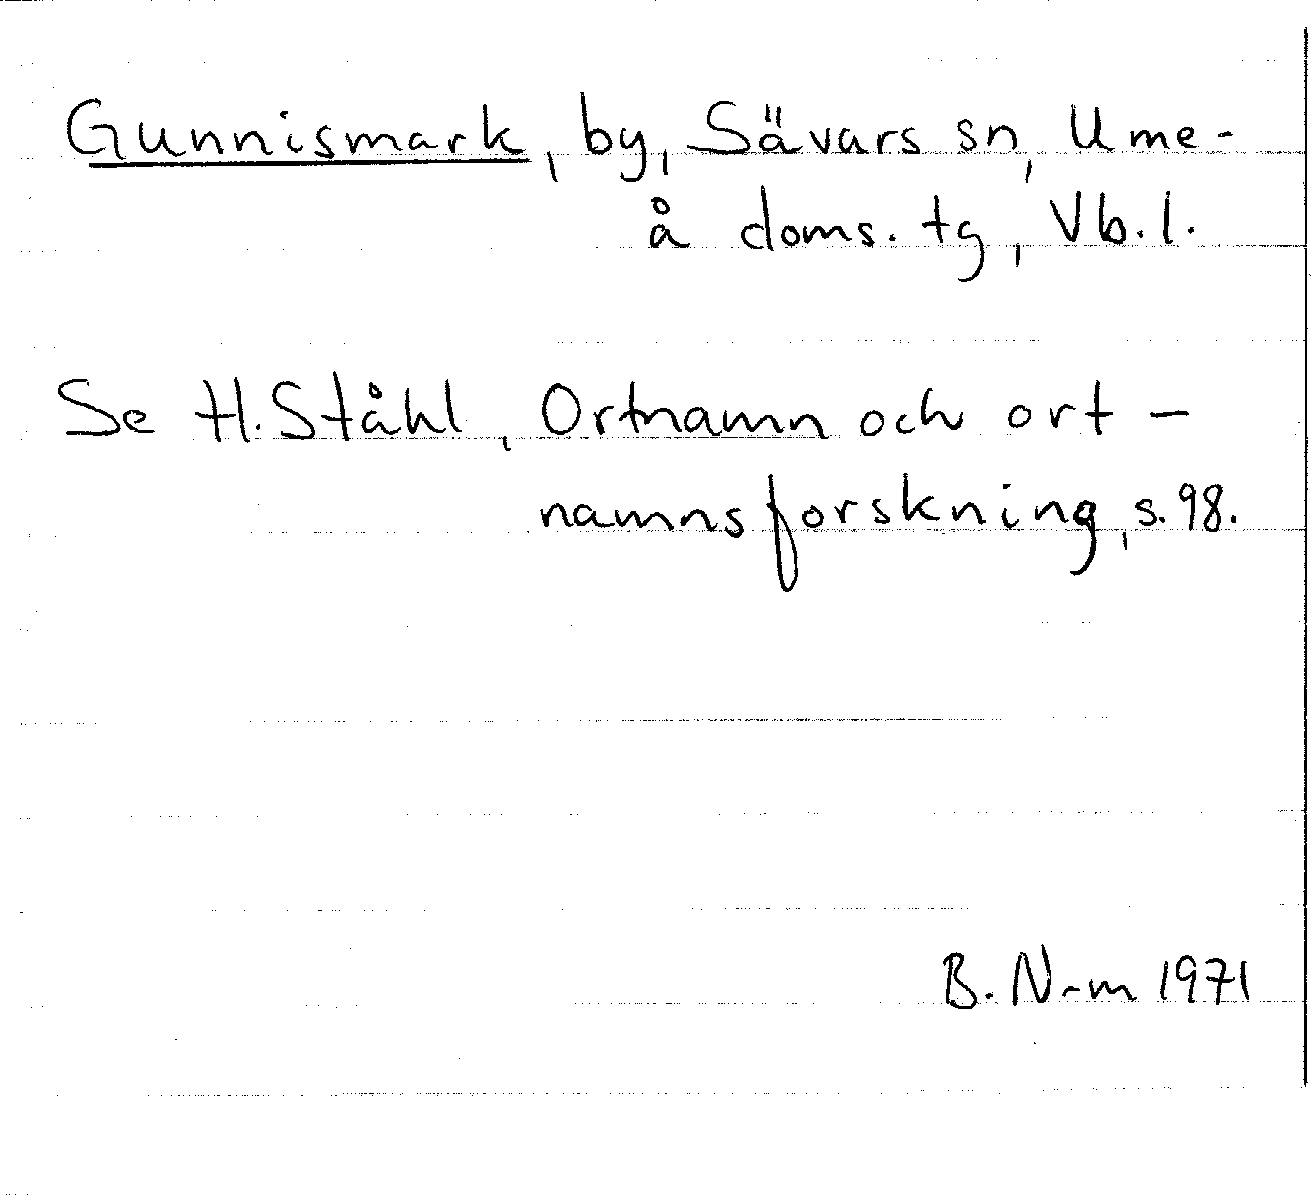 Gunnismark, by, Sävars sn, Ume-
å doms. tg, Vb. l.
Se H. Ståhl, Ortnamn och ort-
namnsforskning, s. 98.
B. N-m 1971